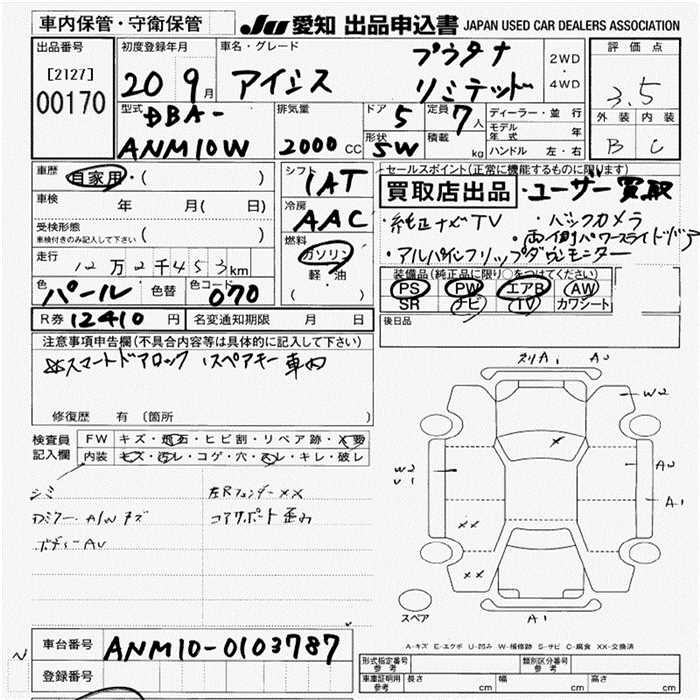 車内保管・守衛保管
JU 愛知 出品申込書 JAPAN USED CAR DEALERS ASSOCIATION
出品番号
[2127]
00170
初度登録年月
20 9月
車名・グレード
アイシス プラタナ
リミテッド
2WD
・
4WD
評価点
3.5
外装 内装
B C
型式
DBA-
ANM10W
排気量
2000 CC
ドア 5
定員 7人
形状 SW
積載 kg
ディーラー・並行
モデル年式 年
ハンドル 左・右
車歴
自家用・( )
車検 年 月( 日)
受検形態
車検付きのみ記入して下さい ( )
走行
12万2千453km
色 パール 色替 色コード 070
R券 12410 円 名変通知期限 月 日
シフト
IAT
冷房
AAC
燃料
ガソリン
軽・油
( )
セールスポイント(正常に機能するものに限ります)
買取店出品・ユーザー買取
・純正ナビTV ・バックカメラ
・両側パワースライドドア
・アルパインフリップダウンモニター
装備品(純正品に限り○をつけてください)
PS PW エアB AW
SR ナビ TV カワシート
後日品
注意事項申告欄(不具合内容等は具体的に記入して下さい)
スマートドアロック 1スペアキー車内
修復歴 有 〔箇所 〕
検査員
記入欄
FW キズ・飛石・ヒビ割・リペア跡・X要
内装 キズ・汚レ・コゲ・穴・スレ・キレ・破レ
シミ
ドアミラー・A/Wキズ
ボディーAU
左Rフェンダーxx
コアサポート歪み
スリA1 A0
W2
W2
U1
x
A0
A1
xx
xx
A1
スペア
A-キズ E-エクボ U-凹み W-補修跡 S-サビ C-腐食 XX-交換済
車台番号 ANM10-0103787
登録番号
形式指定番号
参考
類別区分番号
参考
車庫証明用
参考
長さ cm 幅 cm 高さ cm